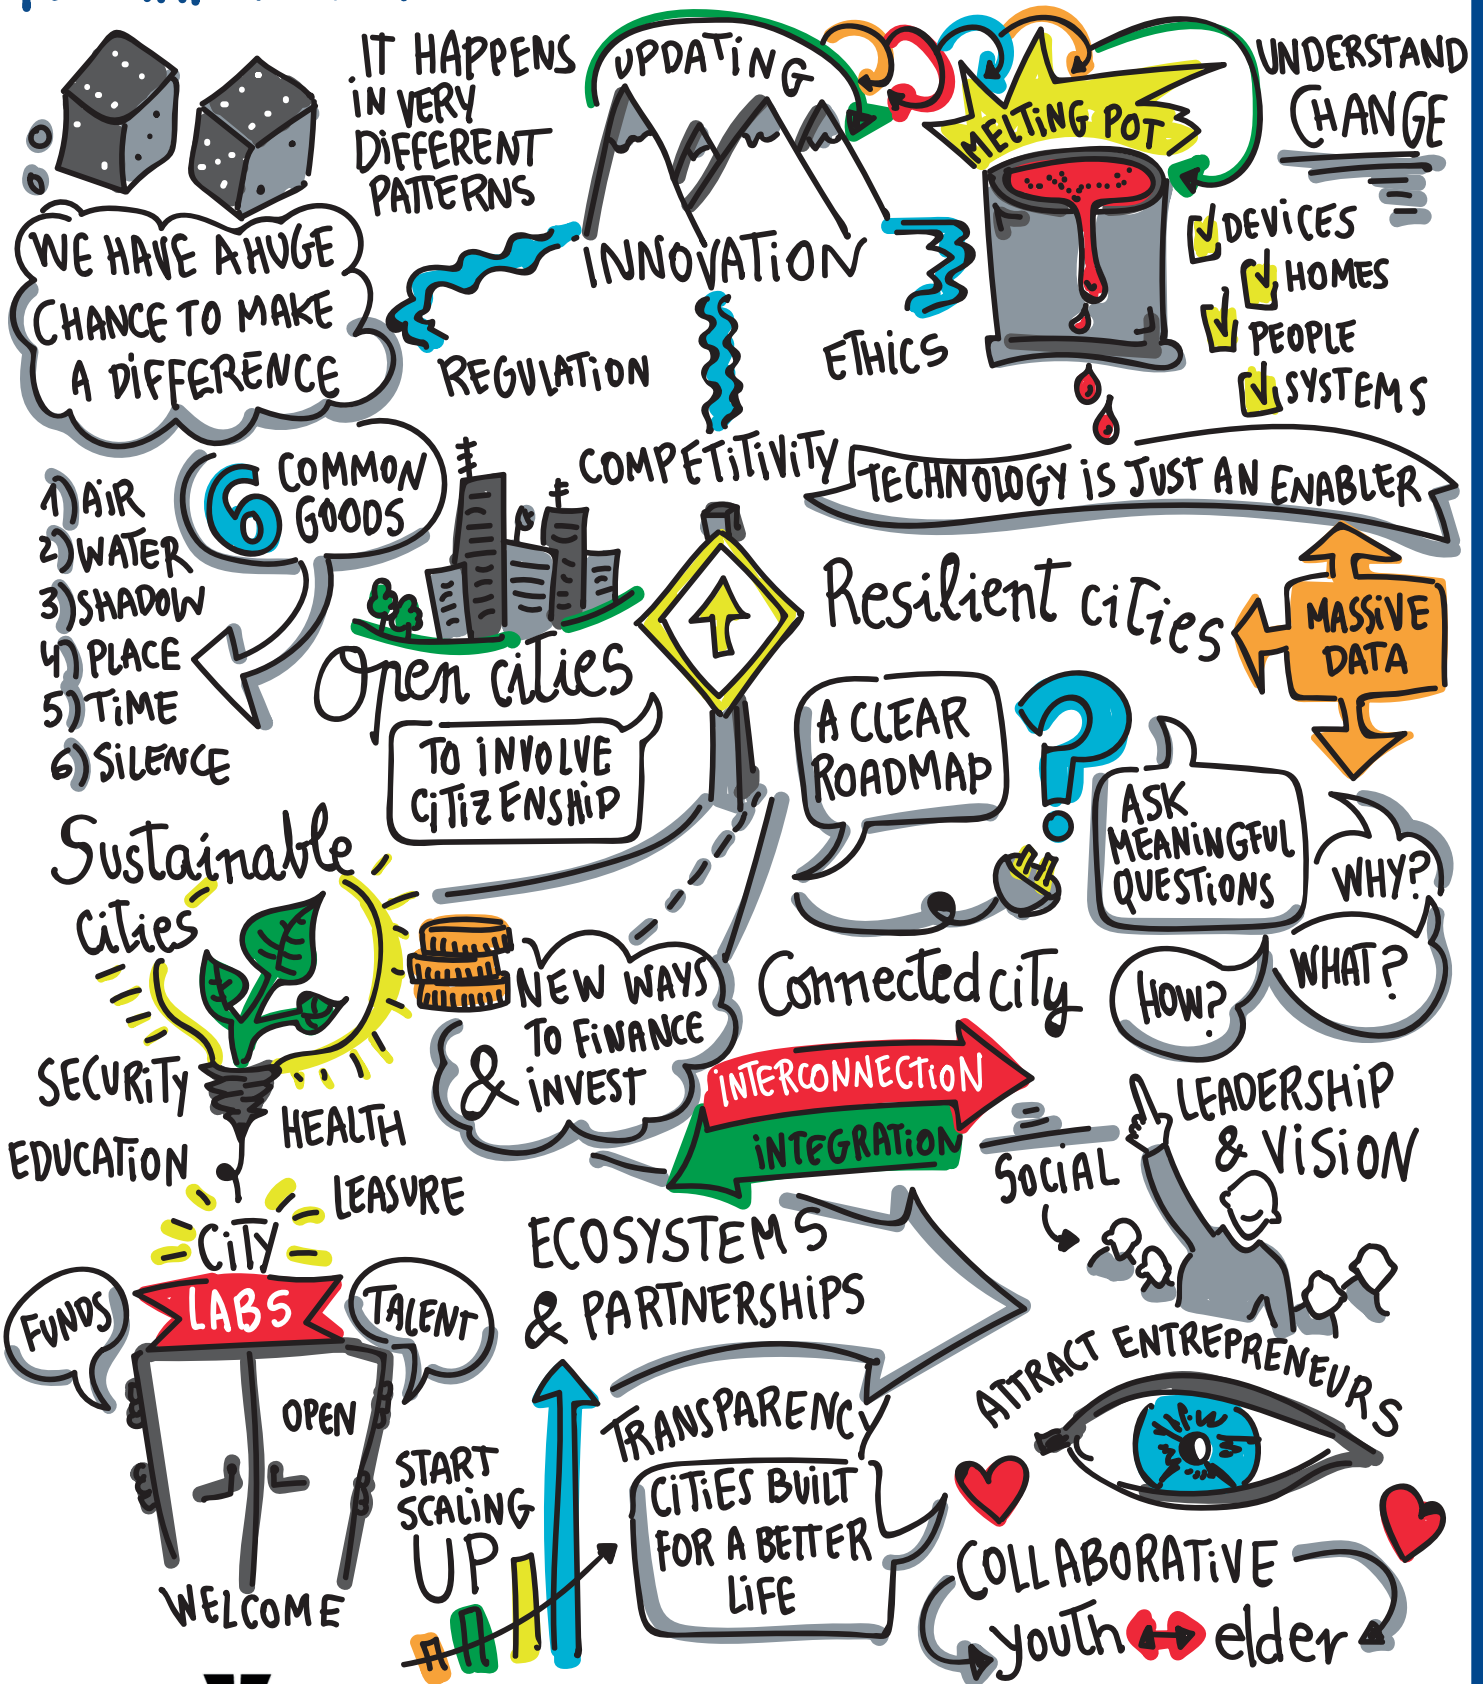 IT HAPPENS
IN VERY
DIFFERENT
PATTERNS
UPDATING
MELTING POT
UNDERSTAND
CHANGE
WE HAVE A HUGE
CHANCE TO MAKE
A DIFFERENCE
INNOVATION
REGULATION
ETHICS
COMPETITIVITY
DEVICES
HOMES
PEOPLE
SYSTEMS
TECHNOLOGY IS JUST AN ENABLER
6 COMMON
GOODS
1) AIR
2) WATER
3) SHADOW
4) PLACE
5) TIME
6) SILENCE
Open cities
TO INVOLVE
CITIZENSHIP
Resilient cities
MASSIVE
DATA
A CLEAR
ROADMAP
?
ASK
MEANINGFUL
QUESTIONS
WHY?
WHAT?
HOW?
Sustainable
cities
SECURITY
HEALTH
EDUCATION
LEASURE
NEW WAYS
TO FINANCE
& INVEST
Connected city
INTERCONNECTION
INTEGRATION
SOCIAL
LEADERSHIP
& VISION
CITY
LABS
FUNDS
TALENT
OPEN
WELCOME
ECOSYSTEMS
& PARTNERSHIPS
START
SCALING
UP
TRANSPARENCY
CITIES BUILT
FOR A BETTER
LIFE
ATTRACT ENTREPRENEURS
COLLABORATIVE
youth elder